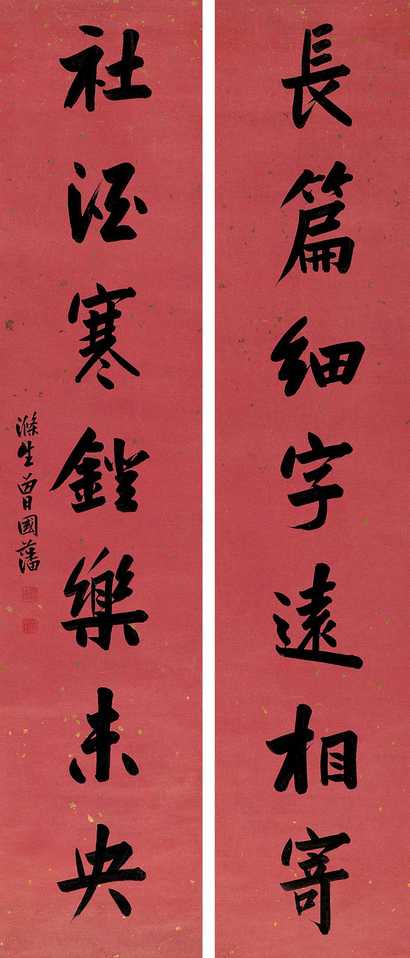 長篇細字遠相寄
社酒寒鐙樂未央
滌生曾國藩